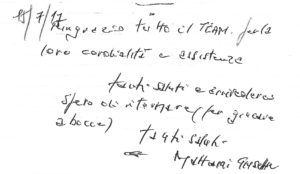 18/7/17
Ringrazio tutto il TEAM. per la
loro cordialità e assistenza
tanti saluti e arrivederci
spero di ritornare (per giocare
a bocce)
tanti saluti